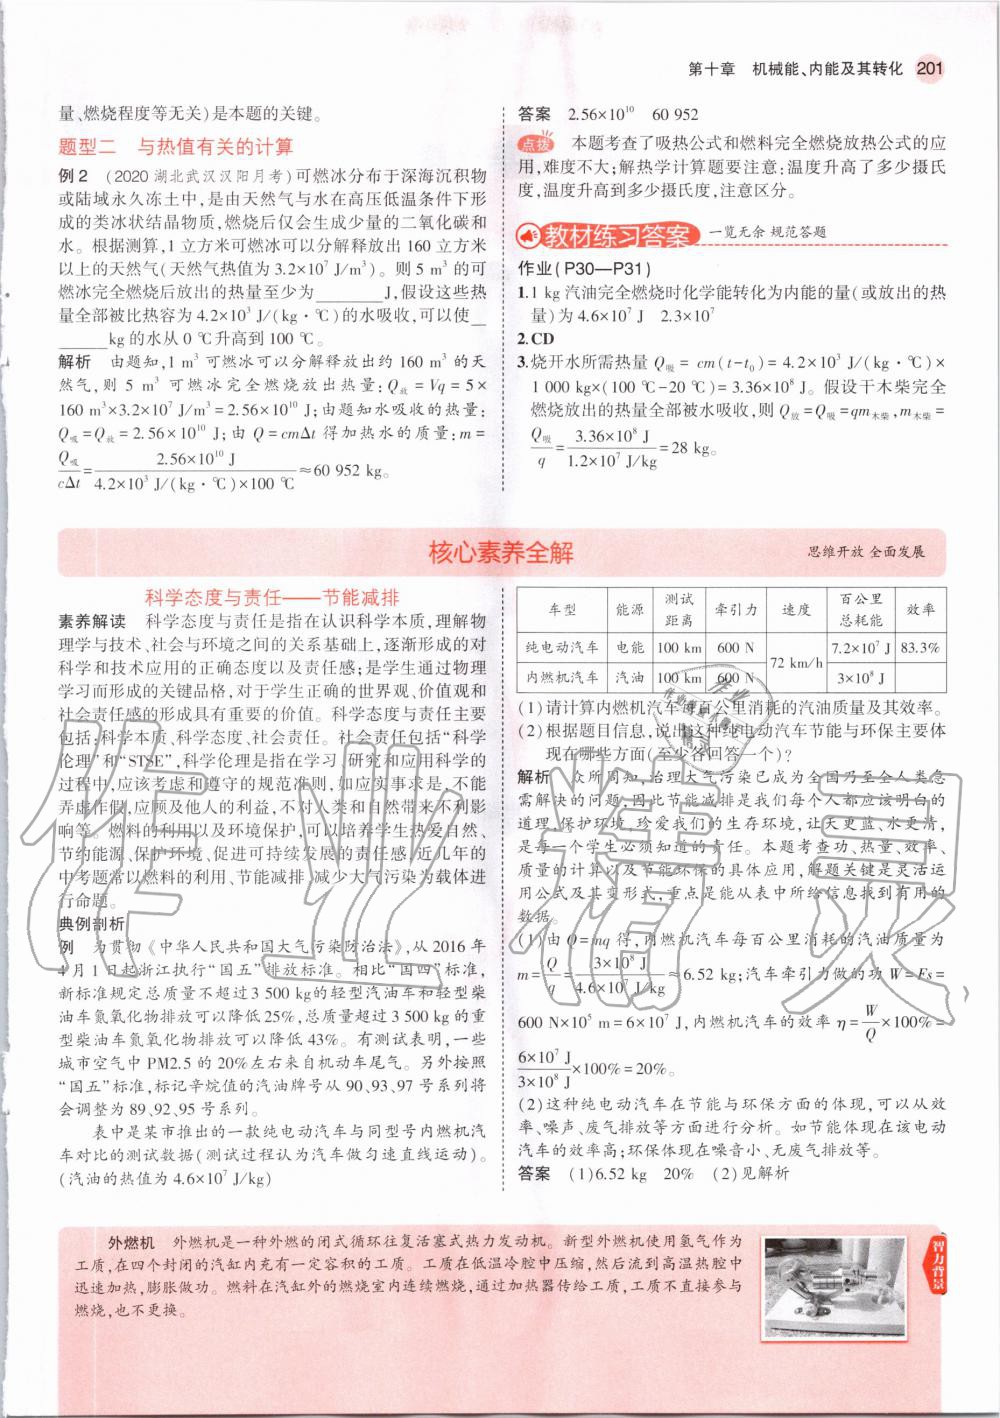 第十章 机械能、内能及其转化 201
量、燃烧程度等无关)是本题的关键。
题型二 与热值有关的计算
例2 (2020湖北武汉汉阳月考)可燃冰分布于深海沉积物
或陆域永久冻土中,是由天然气与水在高压低温条件下形
成的类冰状结晶物质,燃烧后仅会生成少量的二氧化碳和
水。根据测算,1立方米可燃冰可以分解释放出160立方米
以上的天然气(天然气热值为3.2×10⁷ J/m³)。则5 m³的可
燃冰完全燃烧后放出的热量至少为______J,假设这些热
量全部被比热容为4.2×10³ J/(kg·℃)的水吸收,可以使_
____kg的水从0 ℃升高到100 ℃。
解析 由题知,1 m³可燃冰可以分解释放出约160 m³的天
然气,则5 m³可燃冰完全燃烧放出热量:Q放=Vq=5×
160 m³×3.2×10⁷ J/m³=2.56×10¹⁰ J;由题知水吸收的热量:
Q吸=Q放=2.56×10¹⁰ J;由Q=cmΔt得加热水的质量:m=
Q吸/cΔt=2.56×10¹⁰ J/4.2×10³ J/(kg·℃)×100 ℃≈60 952 kg。
答案 2.56×10¹⁰ 60 952
点拨 本题考查了吸热公式和燃料完全燃烧放热公式的应
用,难度不大;解热学计算题要注意:温度升高了多少摄氏
度,温度升高到多少摄氏度,注意区分。
教材练习答案 一览无余 规范答题
作业(P30—P31)
1.1 kg汽油完全燃烧时化学能转化为内能的量(或放出的热
量)为4.6×10⁷ J 2.3×10⁷
2.CD
3.烧开水所需热量Q吸=cm(t-t₀)=4.2×10³ J/(kg·℃)×
1 000 kg×(100 ℃-20 ℃)=3.36×10⁸ J。假设干木柴完全
燃烧放出的热量全部被水吸收,则Q放=Q吸=qm木柴,m木柴=
Q吸/q=3.36×10⁸ J/1.2×10⁷ J/kg=28 kg。
核心素养全解 思维开放 全面发展
科学态度与责任——节能减排
素养解读 科学态度与责任是指在认识科学本质,理解物
理学与技术、社会与环境之间的关系基础上,逐渐形成的对
科学和技术应用的正确态度以及责任感;是学生通过物理
学习而形成的关键品格,对于学生正确的世界观、价值观和
社会责任感的形成具有重要的价值。科学态度与责任主要
包括:科学本质、科学态度、社会责任。社会责任包括“科学
伦理”和“STSE”,科学伦理是指在学习、研究和应用科学的
过程中,应该考虑和遵守的规范准则,如应实事求是,不能
弄虚作假,应顾及他人的利益,不对人类和自然带来不利影
响等。燃料的利用以及环境保护,可以培养学生热爱自然、
节约能源、保护环境、促进可持续发展的责任感,近几年的
中考题常以燃料的利用、节能减排、减少大气污染为载体进
行命题。
典例剖析
例 为贯彻《中华人民共和国大气污染防治法》,从2016年
4月1日起浙江执行“国五”排放标准。相比“国四”标准,
新标准规定总质量不超过3 500 kg的轻型汽油车和轻型柴
油车氮氧化物排放可以降低25%,总质量超过3 500 kg的重
型柴油车氮氧化物排放可以降低43%。有测试表明,一些
城市空气中PM2.5的20%左右来自机动车尾气。另外按照
“国五”标准,标记辛烷值的汽油牌号从90、93、97号系列将
会调整为89、92、95号系列。
表中是某市推出的一款纯电动汽车与同型号内燃机汽
车对比的测试数据(测试过程认为汽车做匀速直线运动)。
(汽油的热值为4.6×10⁷ J/kg)
车型 能源 测试距离 牵引力 速度 百公里总耗能 效率
纯电动汽车 电能 100 km 600 N 72 km/h 7.2×10⁷ J 83.3%
内燃机汽车 汽油 100 km 600 N 3×10⁸ J
(1)请计算内燃机汽车每百公里消耗的汽油质量及其效率。
(2)根据题目信息,说出这种纯电动汽车节能与环保主要体
现在哪些方面(至少各回答一个)?
解析 众所周知,治理大气污染已成为全国乃至全人类急
需解决的问题,因此节能减排是我们每个人都应该明白的
道理,保护环境,珍爱我们的生存环境,让天更蓝、水更清,
是每一个学生必须知道的责任。本题考查功、热量、效率、
质量的计算以及节能环保的具体应用,解题关键是灵活运
用公式及其变形式,重点是能从表中所给信息找到有用的
数据。
(1)由Q=mq得,内燃机汽车每百公里消耗的汽油质量为
m=Q/q=3×10⁸ J/4.6×10⁷ J/kg≈6.52 kg;汽车牵引力做的功W=Fs=
600 N×10⁵ m=6×10⁷ J,内燃机汽车的效率η=W/Q×100%=
6×10⁷ J/3×10⁸ J×100%=20%。
(2)这种纯电动汽车在节能与环保方面的体现,可以从效
率、噪声、废气排放等方面进行分析。如节能体现在该电动
汽车的效率高;环保体现在噪音小、无废气排放等。
答案 (1)6.52 kg 20% (2)见解析
外燃机 外燃机是一种外燃的闭式循环往复活塞式热力发动机。新型外燃机使用氢气作为
工质,在四个封闭的汽缸内充有一定容积的工质。工质在低温冷腔中压缩,然后流到高温热腔中
迅速加热,膨胀做功。燃料在汽缸外的燃烧室内连续燃烧,通过加热器传给工质,工质不直接参与
燃烧,也不更换。
智力背景
作业精灵